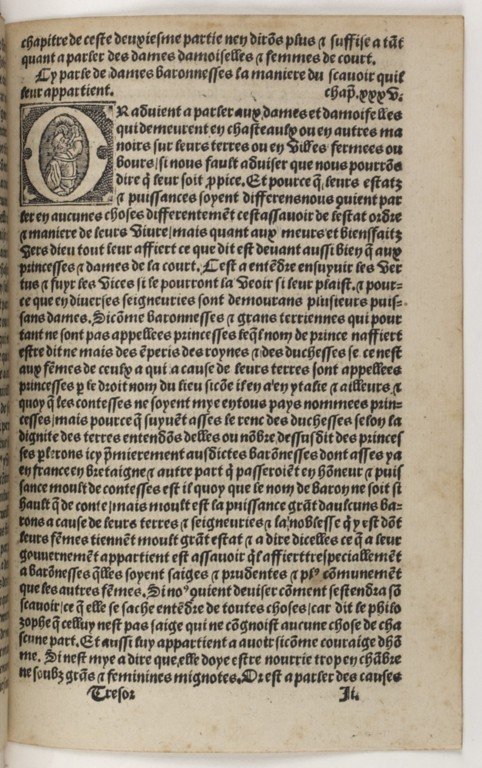 chapitre de ceste deuxiesme partie nen dirõs plus ⁊ suffise a tãt
quant a parler des dames damoiselles ⁊ femmes de court.
Cy parle de dames baronnesses la maniere du scauoir quil
leur appartient. chap̃. xxxv.
OR aduient a parler aux dames et damoiselles
qui demeurent en chasteaulx ou en autres ma
noirs sur leurs terres ou en villes fermees ou
bours / si nous fault aduiser que nous pourrõs
dire q̃ leur soit ꝓpice. Et pource q̃ leurs estatz
⁊ puissances soyent differens nous quient par
ler en aucunes choses differentemẽt cestassauoir de lestat ordre
⁊ maniere de leurs viure / mais quant aux meurs et biensfaitz
vers dieu tout leur affiert ce que dit est deuant aussi bien q̃ aux
princesses ⁊ dames de la court. Cest a entẽdre ensuyuir les ver
tus ⁊ fuyr les vices si le pourront la veoir si leur plaist. ⁊ pour-
ce que en diuerses seigneuries sont demourans plusieurs puis-
sans dames. Sicõme baronnesses ⁊ grans terriennes qui pour
tant ne sont pas appellees princesses leq̃l nom de prince naffiert
estre dit ne mais des ẽperis des roynes ⁊ des duchesses se ce nest
aux fẽmes de ceulx a qui a cause de leurs terres sont appellees
princesses ꝑ le droit nom du lieu sicõe il en a en ytalie ⁊ ailleurs ⁊
quoy q̃ les contesses ne soyent mye en tous pays nommees prin-
cesses / mais pource q̃ suyuẽt asses le renc des duchesses selon la
dignite des terres entendõs delles ou nõbre dessusdit des princes
ses ꝑlerons icy p̃mierement ausdictes baronesses dont asses ya
en france en bretaigne ⁊ autre part q̃ passeroiẽt en hõneur ⁊ puis
sance moult de contesses est il quoy que le nom de baron ne soit si
hault q̃ de conte / mais moult est la puissance grãt daulcuns ba-
rons a cause de leurs terres ⁊ seigneuries ⁊ la noblesse q̃ y est dõt
leurs fẽmes tiennẽt moult grãt estat ⁊ a dire dicelles ce q̃ a leur
gouuernemẽt appartient est assauoir q̃l affiert trespeciallemẽt
a barõnesses q̃lles soyent saiges ⁊ prudentes ⁊ plꝰ cõmunemẽt
que les autres fẽmes. Si noꝰ quient deuiser cõment sestendra sõ
scauoir / ce que elle se sache entẽdre de toutes choses / car dit le philo
zophe q̃ celluy nest pas saige qui ne cõgnoist aucune chose de cha
scune part. Et aussi luy appartient a auoir sicõme couraige dhõ
me. Si nest mye a dire que elle doye estre nourrie trop en chãbre
ne soubz grãs ⁊ feminines mignotes. Or est a parler des causes
Tresor Ii.